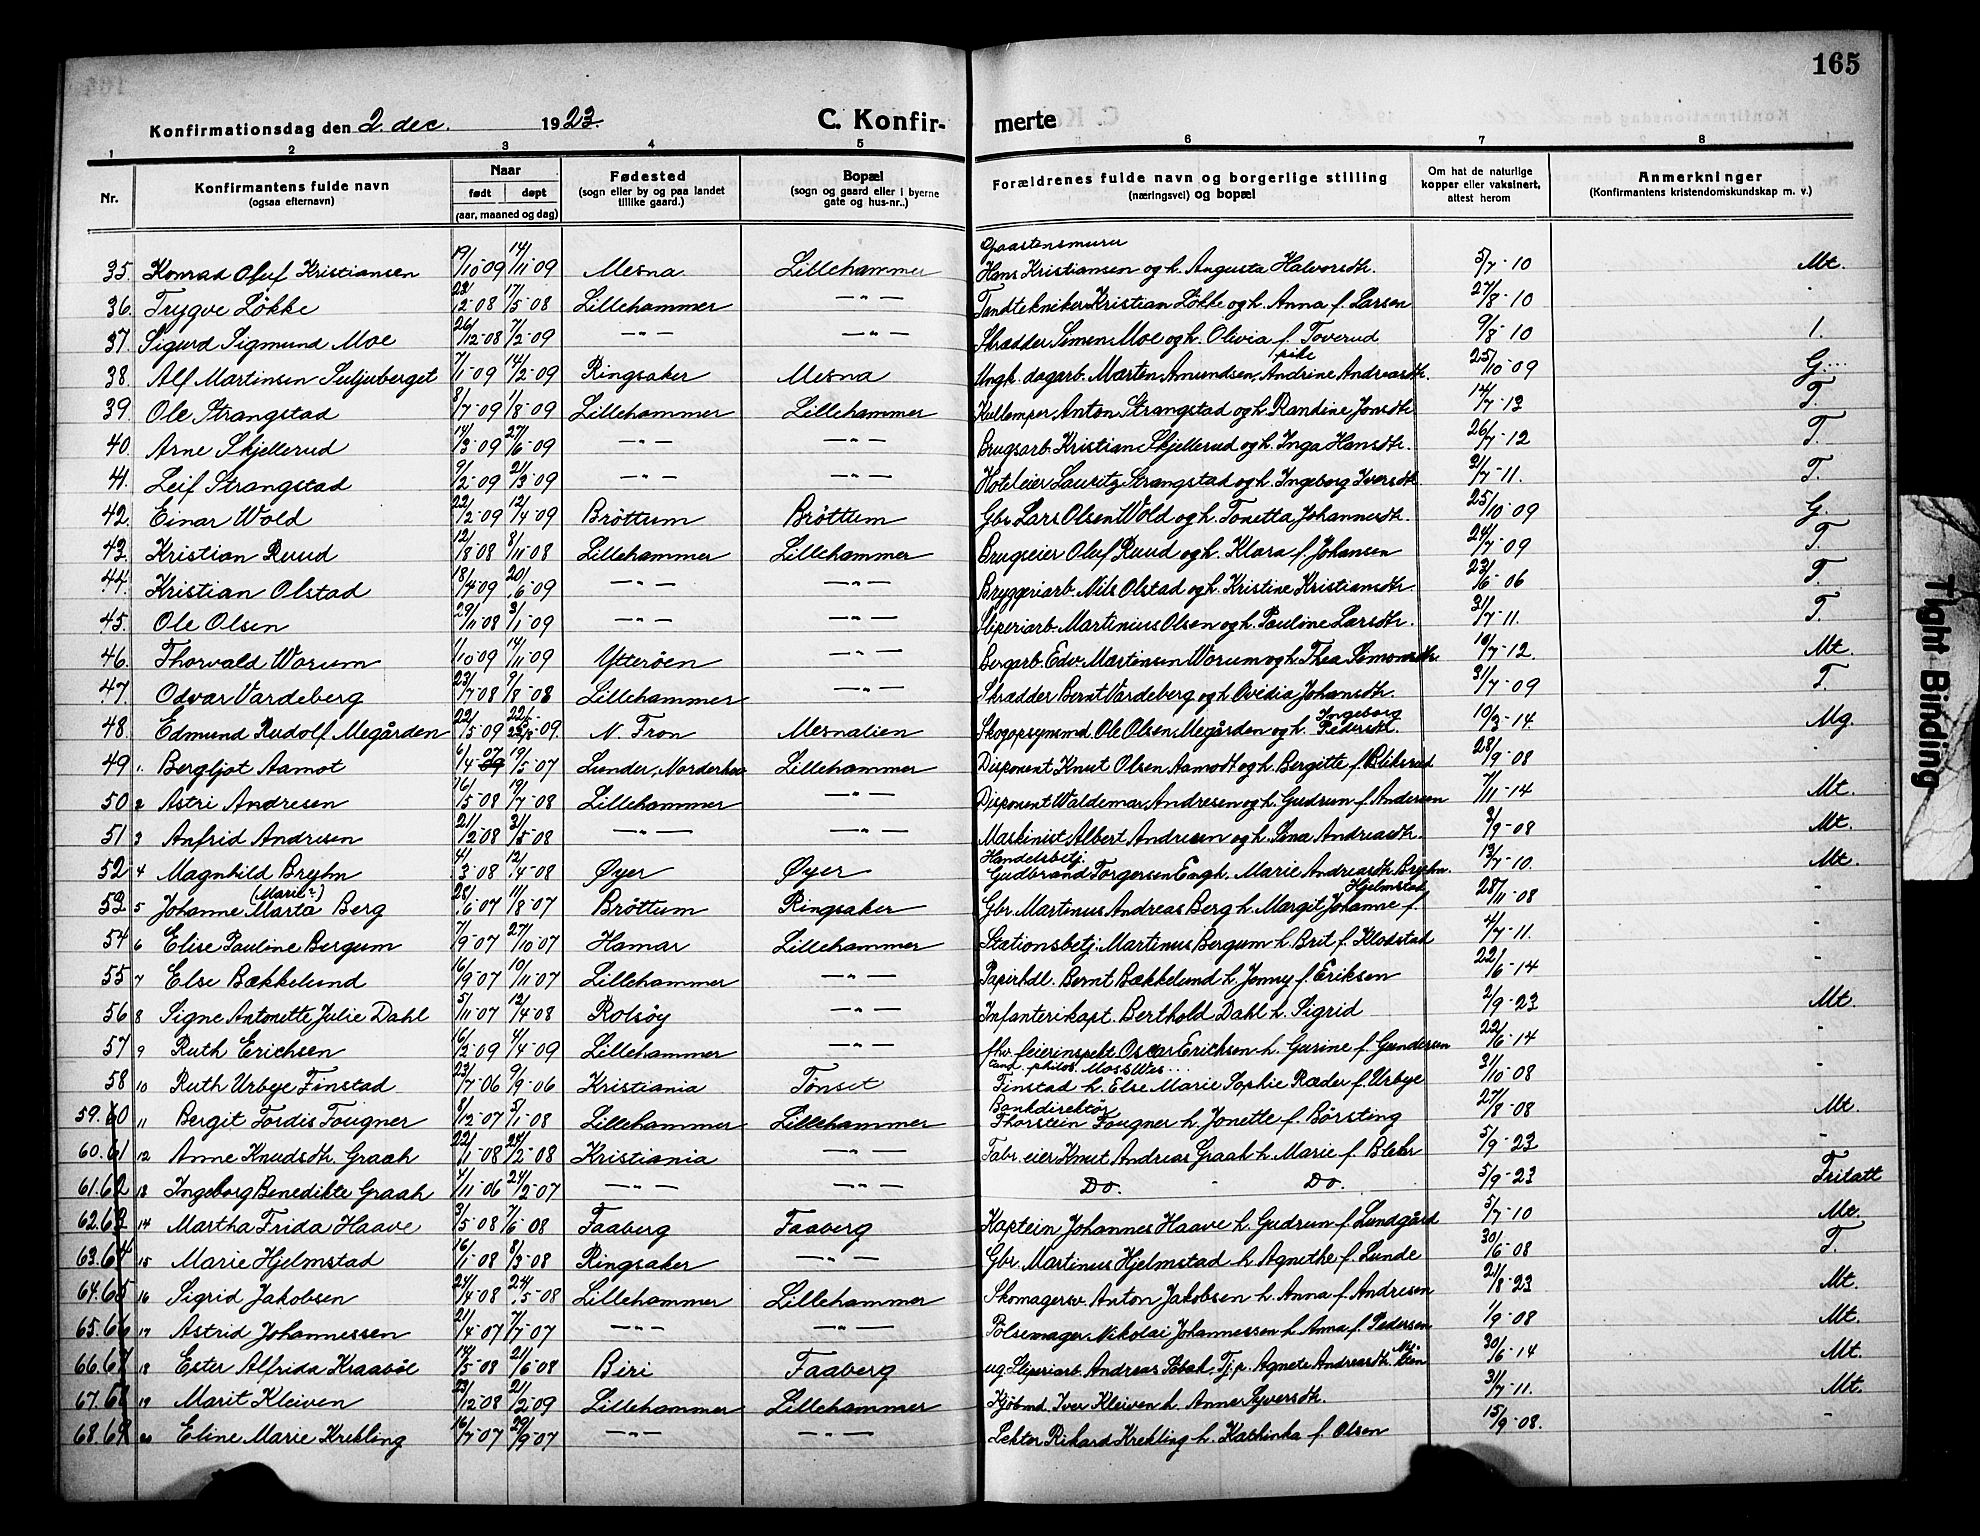 165
Konfirmationsdag den 2. dec. 1923. C. Konfirmerte
1 2 3 4 5 6 7 8
Nr. Konfirmantens fulde navn (ogsaa efternavn) Naar født døpt (aar, maaned og dag) Fødested (sogn eller by og paa landet tillike gaard.) Bopæl (sogn og gaard eller i byerne gate og hus-nr..) Forældrenes fulde navn og borgerlige stilling (næringsvei) og bopæl Om hat de naturlige kopper eller vaksinert, attest herom Anmerkninger (Konfirmantens kristendomskundskap m. v.)
35. Konrad Oluf Kristiansen 19/10-09 14/11-09 Mesna Lillehammer Graastensmurer Hans Kristiansen og h. Augusta Halvorsdtr. 5/7-10 Mt.
36. Trygve Løkke 23/2-08 17/5-08 Lillehammer —"— Tandtekniker Kristian Løkke og h. Anna f. Larsen 27/8-10 -
37. Sigurd Sigmund Moe 26/12-08 7/2-09 —"— —"— Skrædder Simen Moe og h. Olivia f. Toverud 9/8-10 1.
38. Alf Martinsen Suljuberget 7/1-09 14/2-09 Ringsaker Mesna Ungk. dagarb. Martin Amundsen, pike Andrine Andreasdtr. 25/10-09 G...
39. Ole Strangstad 8/7-09 1/8-09 Lillehammer Lillehammer Kullemper Anton Strangstad og h. Randine Jonsdtr. 14/7-13 T.
40. Arne Skjellerud 14/3-09 27/6-09 —"— —"— Brugsarb. Kristian Skjellerud og h. Inga Hansdtr. 26/7-12 T.
41. Leif Strangstad 9/2-09 21/3-09 —"— —"— Hoteleier Lauritz Strangstad og h. Ingeborg Iversdtr. 21/7-11. T.
42. Einar Wold 22/2-09 12/4-09 Brøttum Brøttum Gbr. Lars Olsen Wold og h. Tonetta Johannesdtr. 25/10-09 G.
43. Kristian Ruud 12/8-08 8/11-08 Lillehammer Lillehammer Brugseier Oluf Ruud og h. Klara f. Johansen 24/7-09 T.
44. Kristian Olstad 18/4-09 20/6-09 —"— —"— Bryggeriarb. Nils Olstad og h. Kristine Kristiansdtr. 23/6-06 T.
45. Ole Olsen 29/11-08 3/1-09 —"— Sliperiarb. Martinius Olsen og h. Pauline Larsdtr. 31/7-11. T.
46. Thorvald Worum 1/10-09 14/11-09 Ytterøen —"— Bergarb. Edv. Martinsen Worum og h. Thea Simonsdtr. 19/7-12. Mt.
47. Odvar Vardeberg 23/7-08 9/8-08 Lillehammer —"— Skrædder Bernt Vardeberg og h. Ovidia Johansdtr. 31/7-09 T.
48. Edmund Rudolf Megården 22/5-09 22/8-09. N. Fron Mesnalien Skogopsynsmd. Ole Olsen Megården og h. Ingeborg Pedersdtr. 10/3-14. Mg.
49 1. Bergljot Aamot 6/4-07 19/5-07 Lunder, Norderhov Lillehammer Disponent Knut Olsen Aamodt og h. Bergitte f. Bliksrud 28/9-08 -
50 2 Astri Andresen 16/5-08 19/7-08 Lillehammer —"— Disponent Waldemar Andresen og h. Gudrun f. Andersen 7/11-14 Mt.
51 3 Anfrid Andresen 21/12 08 31/5-08 —"— —"— Maskinist Albert Andresen og h. Sina Andreasdtr. 3/9-08 Mt.
52 4 Magnhild Bryhn 4/3-08 12/4-08 Øyer Øyer Handelsbetj. Gudbrand Torgersen Engh. Marie Andreasdtr. Bryhn. 13/7-10. Mt.
53 5 Johanne Marta (Marie?) Berg 28/6-07 11/8-07 Brøttum Ringsaker Gbr. Martinus Andreas Berg h. Margit Johanne f. Hjelmstad 28/11-08 -
54 6 Elise Pauline Bergum 7/9-07 27/10-07 Hamar Lillehammer Stationsbetj. Martinus Bergum h. Brit f. Klodstad 4/7-11. -
55 7 Else Bækkelund 16/9-07 10/11-07 Lillehammer —"— Papirhdl. Bernt Bækkelund h. Jenny f. Eriksen 22/6-14 -
56 8 Signe Antonette Julie Dahl 5/11-07 12/4-08 Rolsøy —"— Infanterikapt. Berthold Dahl h. Sigrid 2/9-23 Mt.
57 9 Ruth Erichsen 16/2-09 4/4-09 Lillehammer —"— fhv. feierinspekt. Oscar Erichsen h. Gurine f. Gundersen 22/6-14 -
58 10 Ruth Urbye Finstad 23/7-06 9/9-06 Kristiania Tønset Cand. philos. Moss Wes... Finstad h. Else Marie Sophie Ræder f. Urbye 31/10-08 -
59. 60 11 Bergit Tordis Fougner 8/12-07 5/1-08 Lillehammer Lillehammer Bankdirektør Thorstein Fougner h. Jonette f. Børsting 27/8-08 Mt.
60. 61 12 Anne Knudsdtr. Graah 22/1-08 24/2-08 Kristiania —"— Fabr. eier Knut Andreas Graah h. Marie f. Blehr 5/9-23 -
61. 62 13 Ingeborg Benedikte Graah 4/11-06 24/2-07 —"— —"— Do. - Do. 5/9-23 Fritatt
62. 63 14 Martha Frida Haave 3/5-08 7/6-08 Faaberg Faaberg Kaptein Johannes Haave h. Gudrun f. Lundgård 5/7-10 Mt.
63. 64 15 Marie Hjelmstad 16/1-08 8/3-08 Ringsaker —"— Gbr. Martinus Hjelmstad h. Agnethe f. Lunde 30/6-08 T.
64. 65 16 Sigrid Jakobsen 24/4-08 24/5-08 Lillehammer Lillehammer Skomagersv. Anton Jakobsen h. Anna f. Andresen 21/8-23 Mt.
65. 66 17 Astrid Johannessen 21/4-07 7/7-07 —"— —"— Pølsemager Nikolai Johannessen h. Anna f. Pedersen 1/9-08 Mt.
66. 67 18 Ester Alfrida Kraabøl 14/5-08 21/6-08 Biri Faaberg ug. Sliperiarb. Andreas Tj.p. Agnete Andreasdtr. 30/6-14 Mt.
67. 68 19 Marit Kleiven 23/12-08 21/2-09 Lillehammer Lillehammer Kjøbmd. Iver Kleiven h. Anne Syversdtr. 31/7-11. Mt.
68. 69 20 Eline Marie Krekling 16/7-07 29/9-07 —"— —"— Lektor Rikard Krekling h. Kathinka f. Olsen 15/9-08. -
Tight Binding